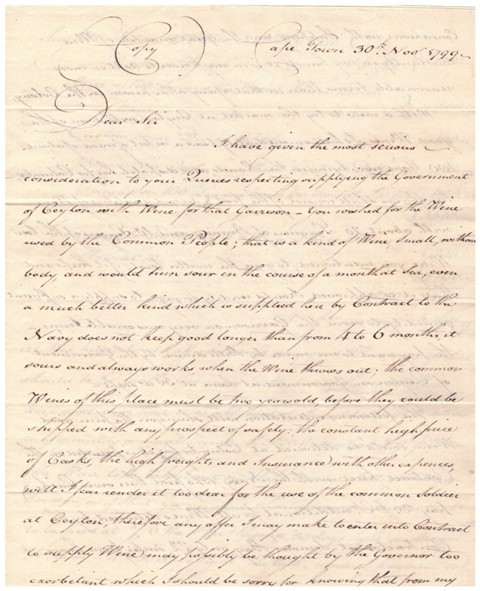 Copy Cape Town 30th Nov 1799
Dear Sir
I have given the most serious
consideration to your Queries respecting supplying the Government
of Ceylon with Wine for that Garrison – You wished for the Wine
used by the Common People; that is a kind of Wine small, without
body and would turn sour in the course of a month at Sea, even
a much better kind which is supplied here by Contract to the
Navy does not keep good longer than from 4 to 6 months, it
sours and always works when the Wine throws out; the common
Wines of this place must be two years old, before they could be
shipped with any prospect of safety: the constant high price
of Casks, the high freights, and Insurance, with other expences,
will I fear render it too dear for the use of the common Soldier
at Ceylon; therefore any offer I may make to enter into Contract
to supply Wine, may possibly be thought by the Governor too
exorbetant which I should be sorry for knowing that from my